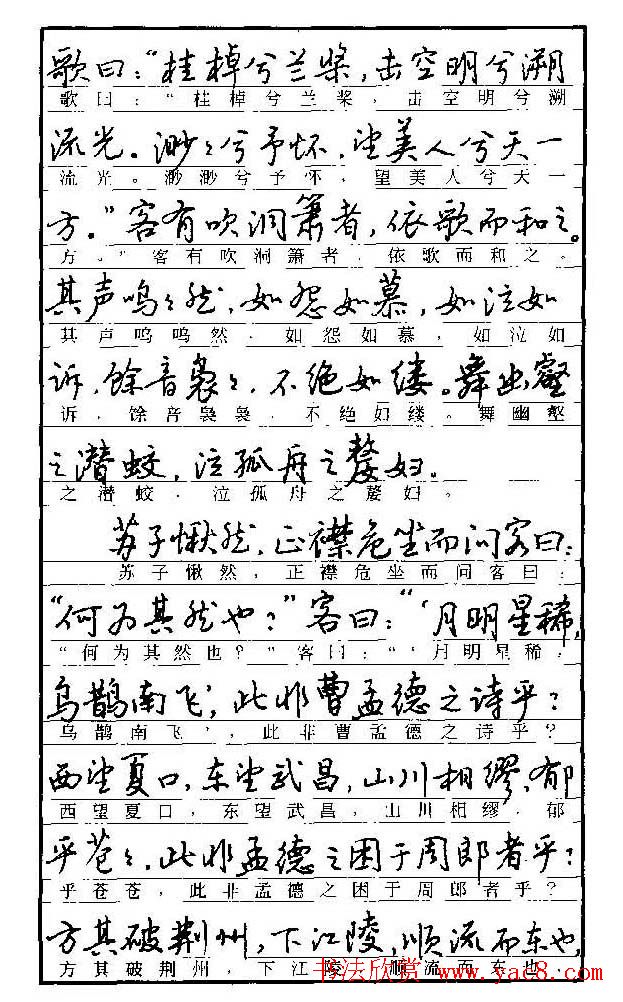 歌曰：“桂棹兮兰桨，击空明兮溯
歌曰：“桂棹兮兰桨，击空明兮溯
流光。渺〻兮予怀，望美人兮天一
流光。渺渺兮予怀，望美人兮天一
方。”客有吹洞箫者，依歌而和之。
方。”客有吹洞箫者，依歌而和之。
其声呜〻然，如怨如慕，如泣如
其声呜呜然，如怨如慕，如泣如
诉，馀音袅〻，不绝如缕。舞幽壑
诉，馀音袅袅，不绝如缕。舞幽壑
之潜蛟，泣孤舟之嫠妇。
之潜蛟，泣孤舟之嫠妇。
苏子愀然，正襟危坐而问客曰：
苏子愀然，正襟危坐而问客曰：
“何为其然也？”客曰：“‘月明星稀，
“何为其然也？”客曰：“‘月明星稀，
乌鹊南飞’，此非曹孟德之诗乎？
乌鹊南飞’，此非曹孟德之诗乎？
西望夏口，东望武昌，山川相缪，郁
西望夏口，东望武昌，山川相缪，郁
乎苍〻，此非孟德之困于周郎者乎？
乎苍苍，此非孟德之困于周郎者乎？
方其破荆州，下江陵，顺流而东也，
方其破荆州，下江陵，顺流而东也
书法欣赏 www.yac8.com